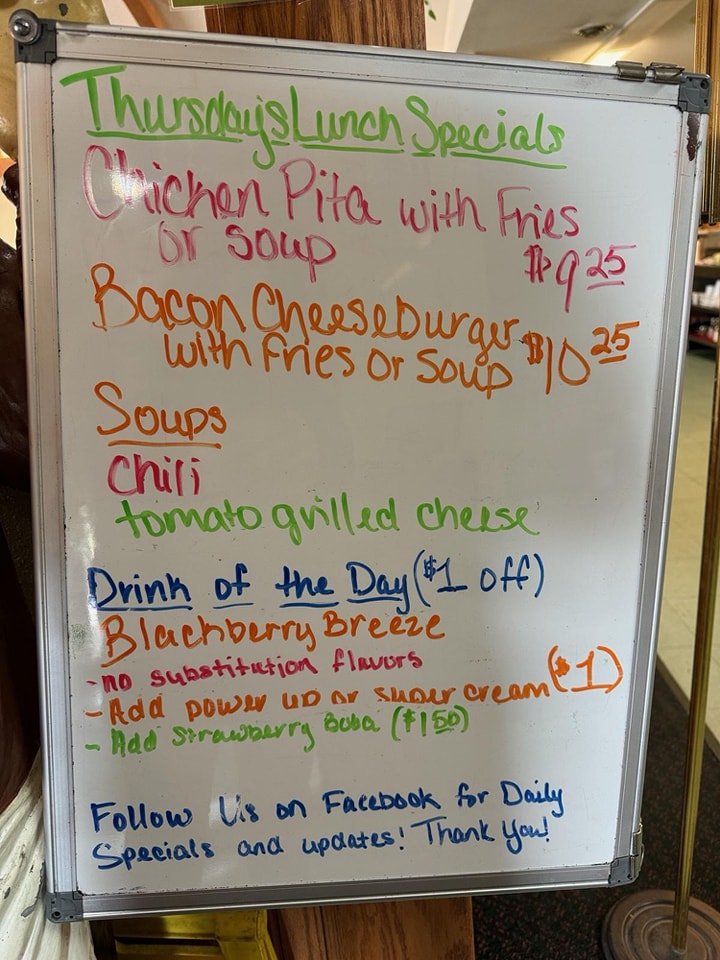 Thursday's Lunch Specials
Chicken Pita with Fries
or soup $9.25
Bacon Cheeseburger
with Fries or Soup $10.25
Soups
Chili
tomato grilled cheese
Drink of the Day ($1 off)
Blackberry Breeze
- no substitution flavors
- Add power up or super cream ($1)
- Add Strawberry Boba ($1.50)
Follow Us on Facebook for Daily
Specials and updates! Thank You!